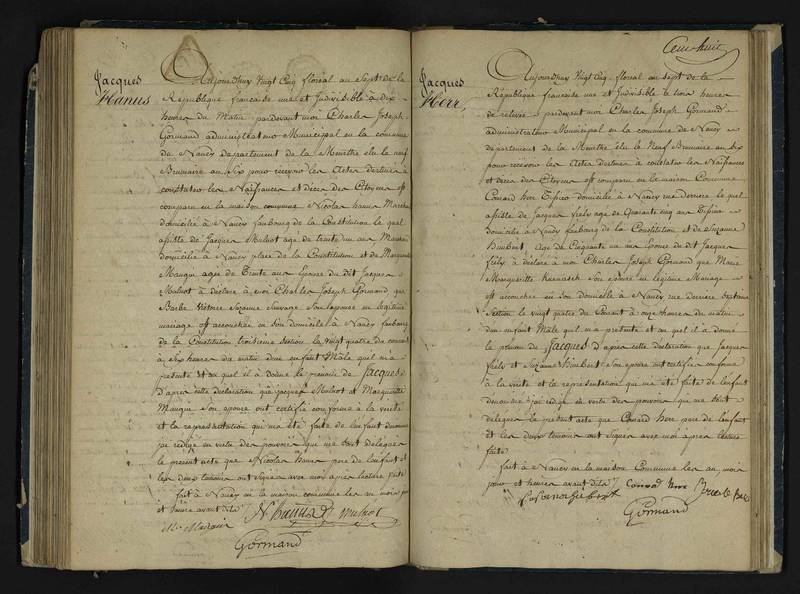 Jacques
Hanus
Aujourd'huy vingt Cinq floreal an Sept de la
République française une et Indivisible à dix
heures du Matin pardevant moi Charles Joseph
Gormand administrateur Municipal en la commune
de Nancy departement de la Meurthe élu le neuf
Brumaire an Six pour recevoir les Actes destinés à
constater les Naissances et décès des Citoyens est
comparu en la maison commune Nicolas hanus
domicilié à Nancy faubourg de la Constitution le quel
assisté de Jacques Mulnot agé de trente un ans
domicilié à Nancy place de la Constitution et de Marguerite
Mangue agée de Trente ans Epouse du dit Jacques
Mulnot à déclaré à moi Charles Joseph Gormand que
Barbe Victoire Suzanne Sauvage Son Epouse en legitime
mariage est accouchée en son domicile à Nancy faubourg
de la Constitution Section le vingt quatre du courant
à Six heures du matin d'un enfant Mâle qu'il m'a
présenté et au quel il à donné le prenom de Jacques
d'apres cette déclaration que Jacques Mulnot et Marguerite
Mangue Son epouse ont certifié conforme à la verité
et la représentation qui m'a été faite de l'enfant denommé
j'ai rédigé en vertu des pouvoirs qui me sont délégués
le present acte que Nicolas hanus pere de l'enfant et
les deux temoins ont signés avec moi apres lecture faite
fait à Nancy en la maison commune les an mois jour
et heures avant dits N hanus J mulnot
Gormand
Cent huit
Jacques
Herr,
Aujourd'huy vingt Cinq floreal an sept de la
République française une et Indivisible à trois heures
de relevée pardevant moi Charles Joseph Gormand
administrateur Municipal en la commune de Nancy
departement de la Meurthe élu le Neuf Brumaire an Six
pour recevoir les Actes destinés à constater les Naissances
et décès des Citoyens est comparu en la maison Commune
Conrad herr domicilié à Nancy rue derriere le quel
assisté de Jacques agé de Quarante cinq ans
domicilié à Nancy faubourg de la Constitution et de Suzanne
himbert, agée de Cinquante un ans epouse du dit Jacques
à déclaré à moi Charles Joseph Gormand que Marie
Marguerite Son epouse en legitime Mariage
est accouchée en son domicile à Nancy rue derriere
Section le vingt quatre du Courant à onze heures du matin
d'un enfant Mâle qu'il m'a présenté et au quel il a donné
le prenom de Jacques d'après cette declaration que Jacques
et Suzanne himbert Son epouse ont certifier conforme
à la verité et la représentation qui m'a été faite de l'enfant
denommé j'ai redigé en vertu des pouvoirs qui me sont
delegués le présent acte que Conrad herr pere de l'enfant
et les deux temoins ont signés avec moi apres lecture
faite
fait à Nancy en la maison Commune les an mois
jour et heures avant dits Conrad herr
Gormand